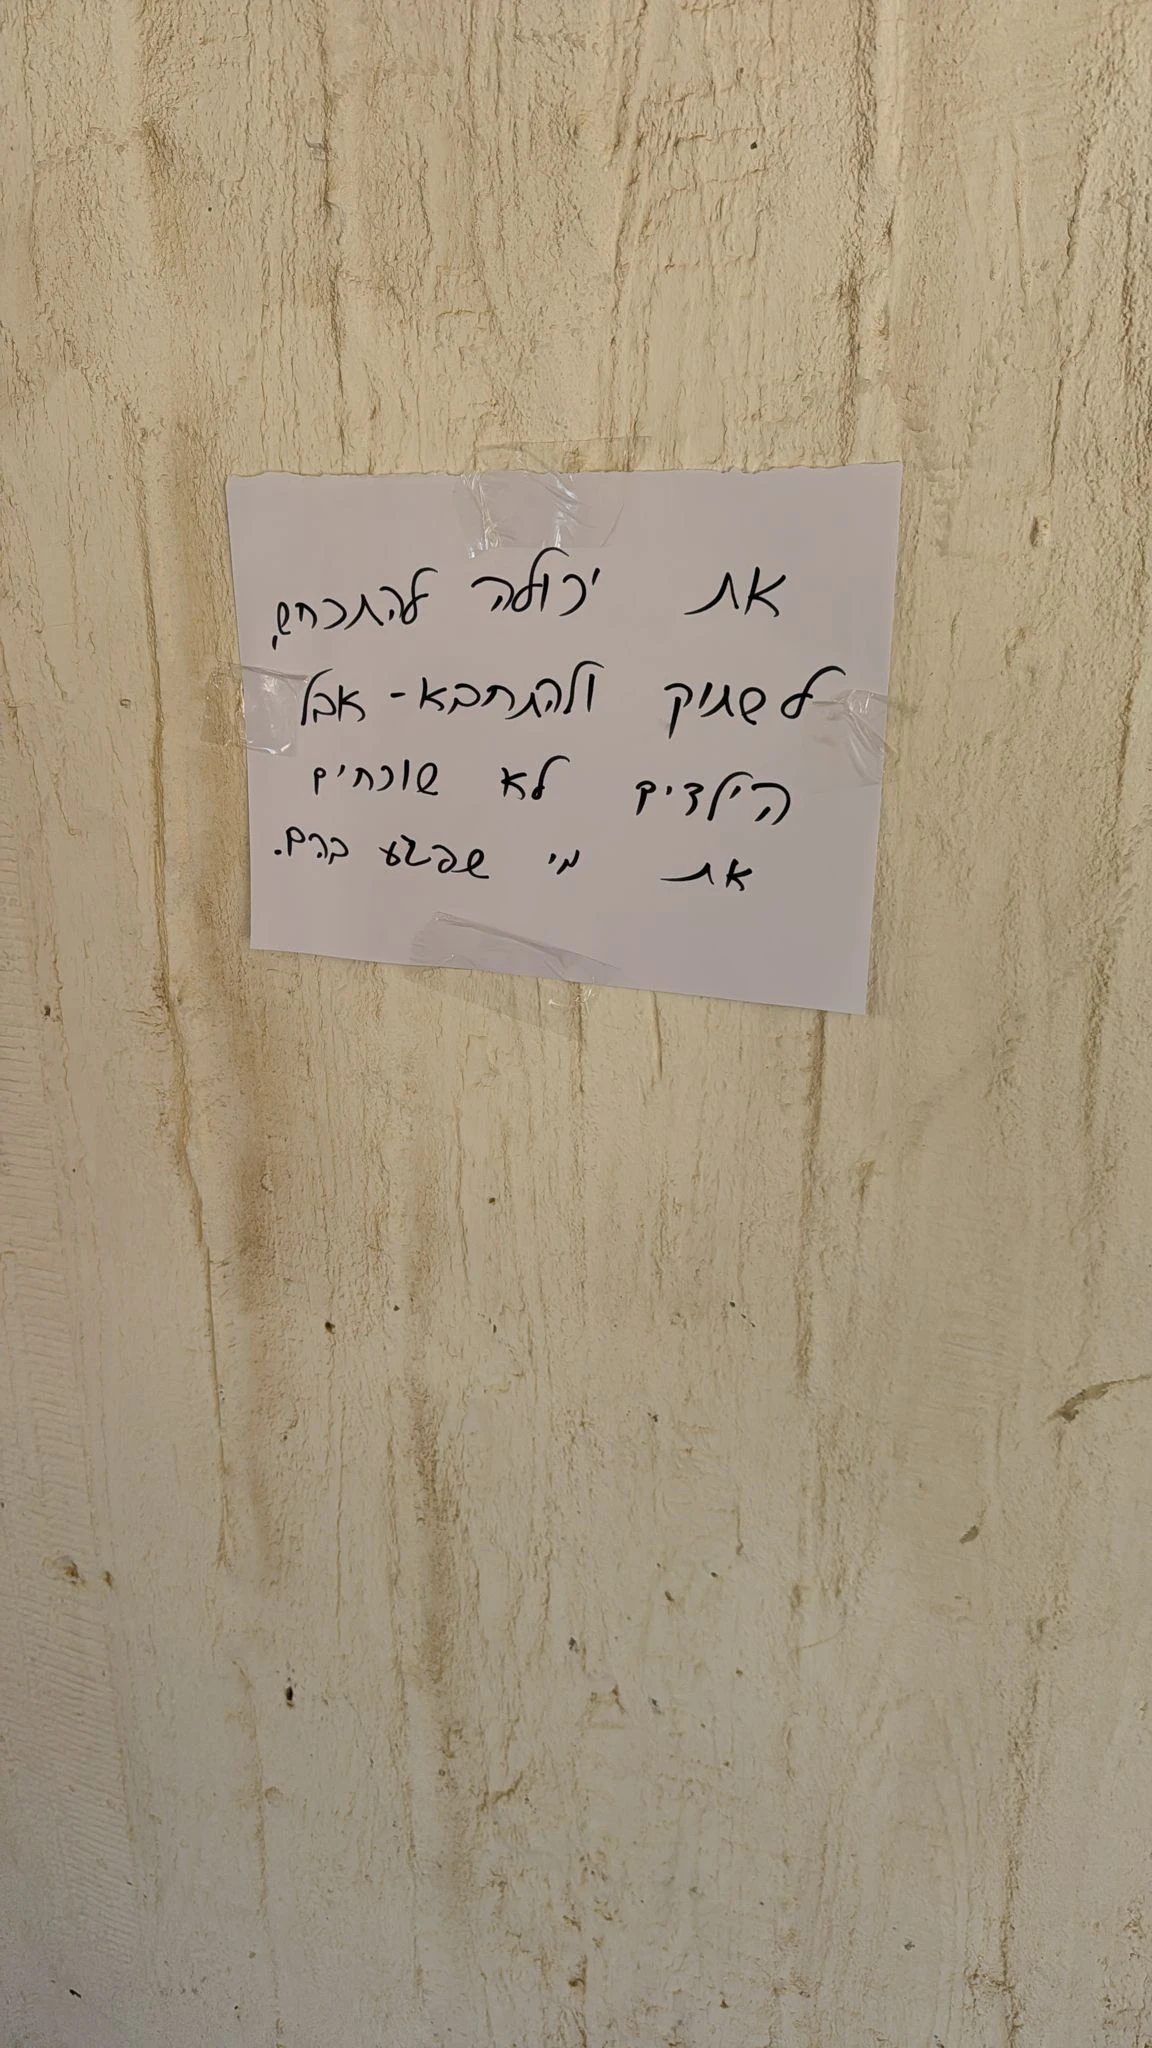 את יכולה להתכחש,
לשתוק ולהתחבא - אבל
הילדים לא שוכחים
את מי שפגע בהם.